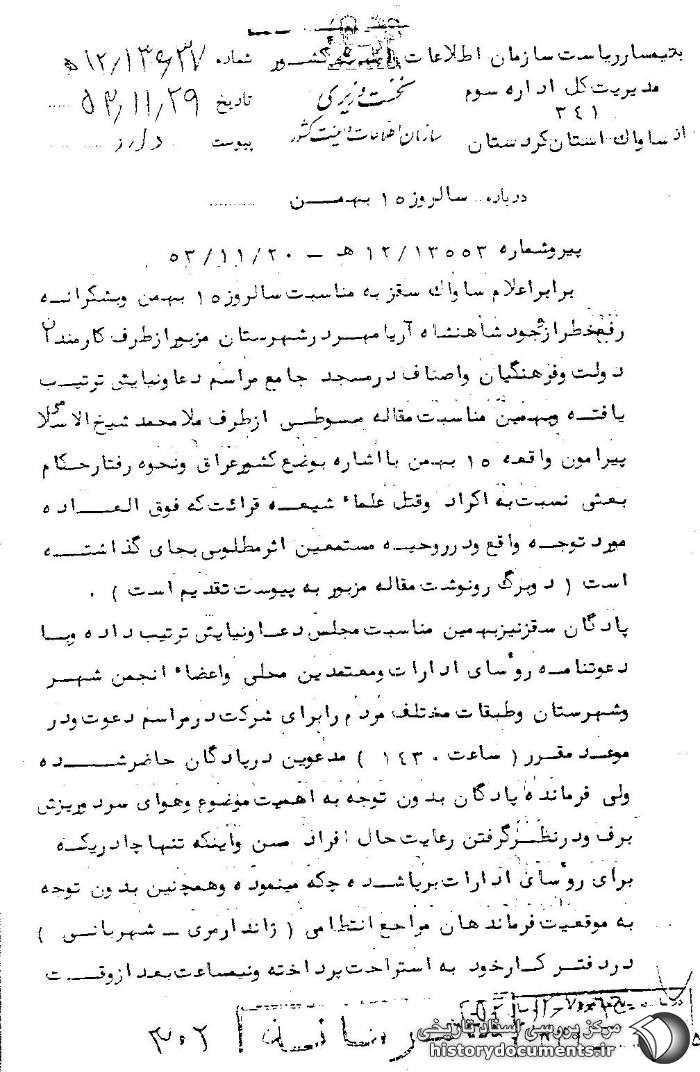 به تیمسار ریاست سازمان اطلاعات و امنیت کشور
مدیریت کل اداره سوم
۳۴۱
از ساواک استان کردستان
نخست وزیری
سازمان اطلاعات و امنیت کشور
شماره ۱۲/۱۳۶۳۷ ه
تاریخ ۵۳/۱۱/۲۹
پیوست دارد
درباره سالروز ۱۵ بهمن
پیرو شماره ۱۲/۱۳۵۵۳ هـ – ۵۳/۱۱/۲۰
برابر اعلام ساواک سقز به مناسبت سالروز ۱۵ بهمن و بشکرانه
رفع خطر از وجود شاهنشاه آریامهر در شهرستان مزبور از طرف کارمندان
دولت و فرهنگیان و اصناف در مسجد جامع مراسم دعا و نیایش ترتیب
یافته و بهمین مناسبت مقاله مبسوطی از طرف ملا محمد شیخ الاسلام
پیرامون واقعه ۱۵ بهمن با اشاره بوضع کشور عراق و نحوه رفتار حکام
بعثی نسبت به اکراد و قتل علماء شیعه قرائت که فوق العاده
مورد توجه واقع و در روحیه مستمعین اثر مطلوبی بجای گذاشته
است ( دو برگ رونوشت مقاله مزبور به پیوست تقدیم است ) .
پادگان سقز نیز بهمین مناسبت مجلس دعا و نیایش ترتیب داده و با
دعوتنامه روٴسای ادارات و معتمدین محلی و اعضاء انجمن شهر
و شهرستان و طبقات مختلف مردم را برای شرکت در مراسم دعوت و در
موعد مقرر ( ساعت ۱۴۳۰ ) مدعوین در پادگان حاضر شده
ولی فرمانده پادگان بدون توجه به اهمیت موضوع و هوای سرد و ریزش
برف و در نظر گرفتن رعایت حال افراد مسن و اینکه تنها چادریکه
برای روٴسای ادارات برپا شده چکه مینموده و همچنین بدون توجه
به موقعیت فرماندهان مراجع انتظامی ( ژاندارمری – شهربانی )
در دفتر کار خود به استراحت پرداخته و نیمساعت بعد از وقت
۳۰۲
مرکز بررسی اسناد تاریخی
historydocuments.ir